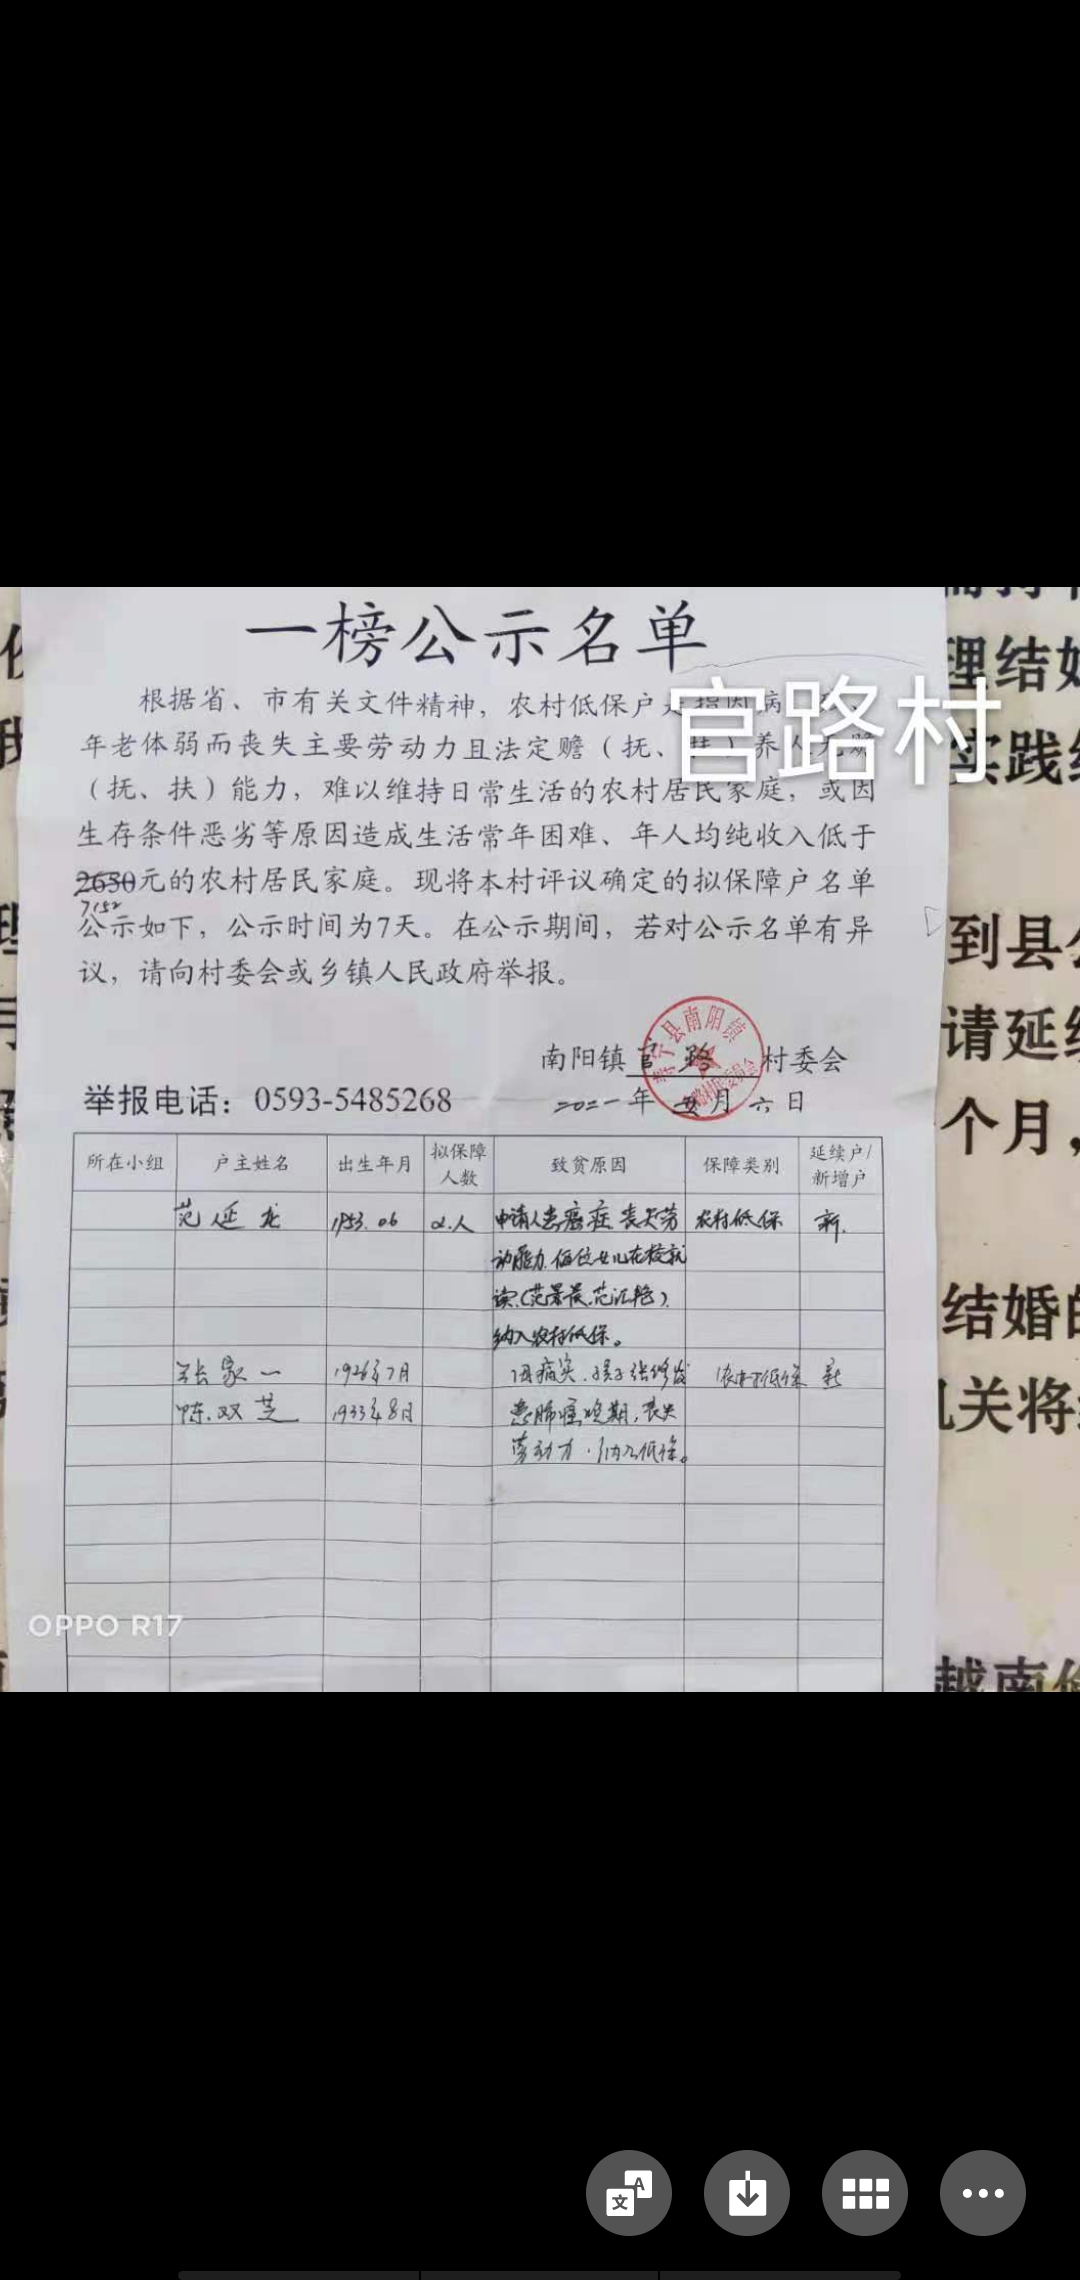 一榜公示名单
官路村
根据省、市有关文件精神，农村低保户是指因病
年老体弱而丧失主要劳动力且法定赡（抚、扶）养人无赡
（抚、扶）能力，难以维持日常生活的农村居民家庭，或因
生存条件恶劣等原因造成生活常年困难、年人均纯收入低于
2630元的农村居民家庭。现将本村评议确定的拟保障户名单
7152
公示如下，公示时间为7天。在公示期间，若对公示名单有异
议，请向村委会或乡镇人民政府举报。
南阳镇官路村委会
举报电话：0593-5485268
二〇二一年 月六日
所在小组 户主姓名 出生年月 拟保障人数 致贫原因 保障类别 延续户/新增户
范延龙 1953.06 2人 申请人患癌症 丧失劳 农村低保 新
动能力 女儿在校就
读（范景 范江艳）
纳入农村低保。
张家一 1926年7月 因病灾 孩子张修 农村低保 新
陈双芝 1933年8月 患肺癌晚期，丧失
劳动力 纳入低保。
OPPO R17
理结婚
实践
到县
请延续
个月，
结婚的
机关将
越南